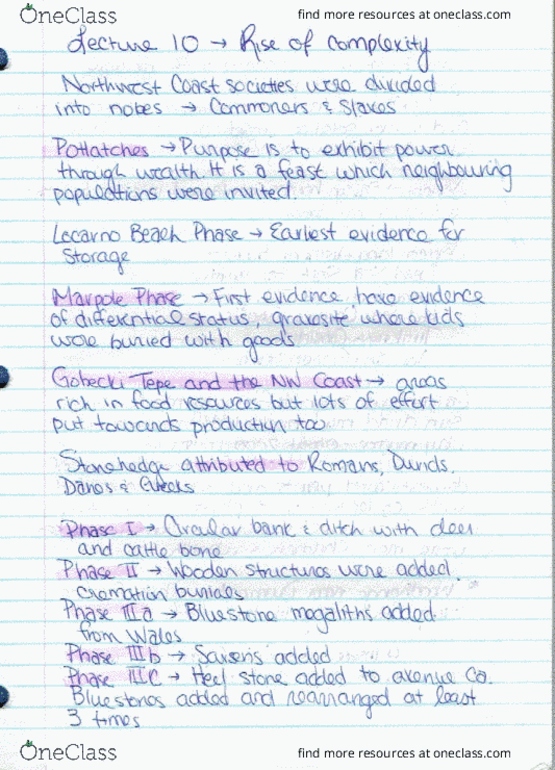 OneClass find more resources at oneclass.com
Lecture 10 → Rise of complexity
Northwest Coast societies were divided
into nobes → Commoners & Slaves
Potlatches → Purpose is to exhibit power
through wealth. It is a feast which neighbouring
populations were invited.
Locarno Beach Phase → Earliest evidence for
Storage
Marpole Phase → First evidence, have evidence
of differential status, gravesite where kids
were buried with goods
Gobecki Tepe and the NW Coast → areas
rich in food resources but lots of effort
put towards production too
Stonehedge attributed to Romans, Druids,
Danes & Greeks
Phase I → Circular bank & ditch with deer
and cattle bone
Phase II → Wooden structures were added.
Cremation burials
Phase IIIa → Bluestone megaliths added
from Wales
Phase IIIb → Sarsens added
Phase IIIC → Heel stone added to avenue Ca.
Bluestones added and rearranged at least
3 times
OneClass find more resources at oneclass.com